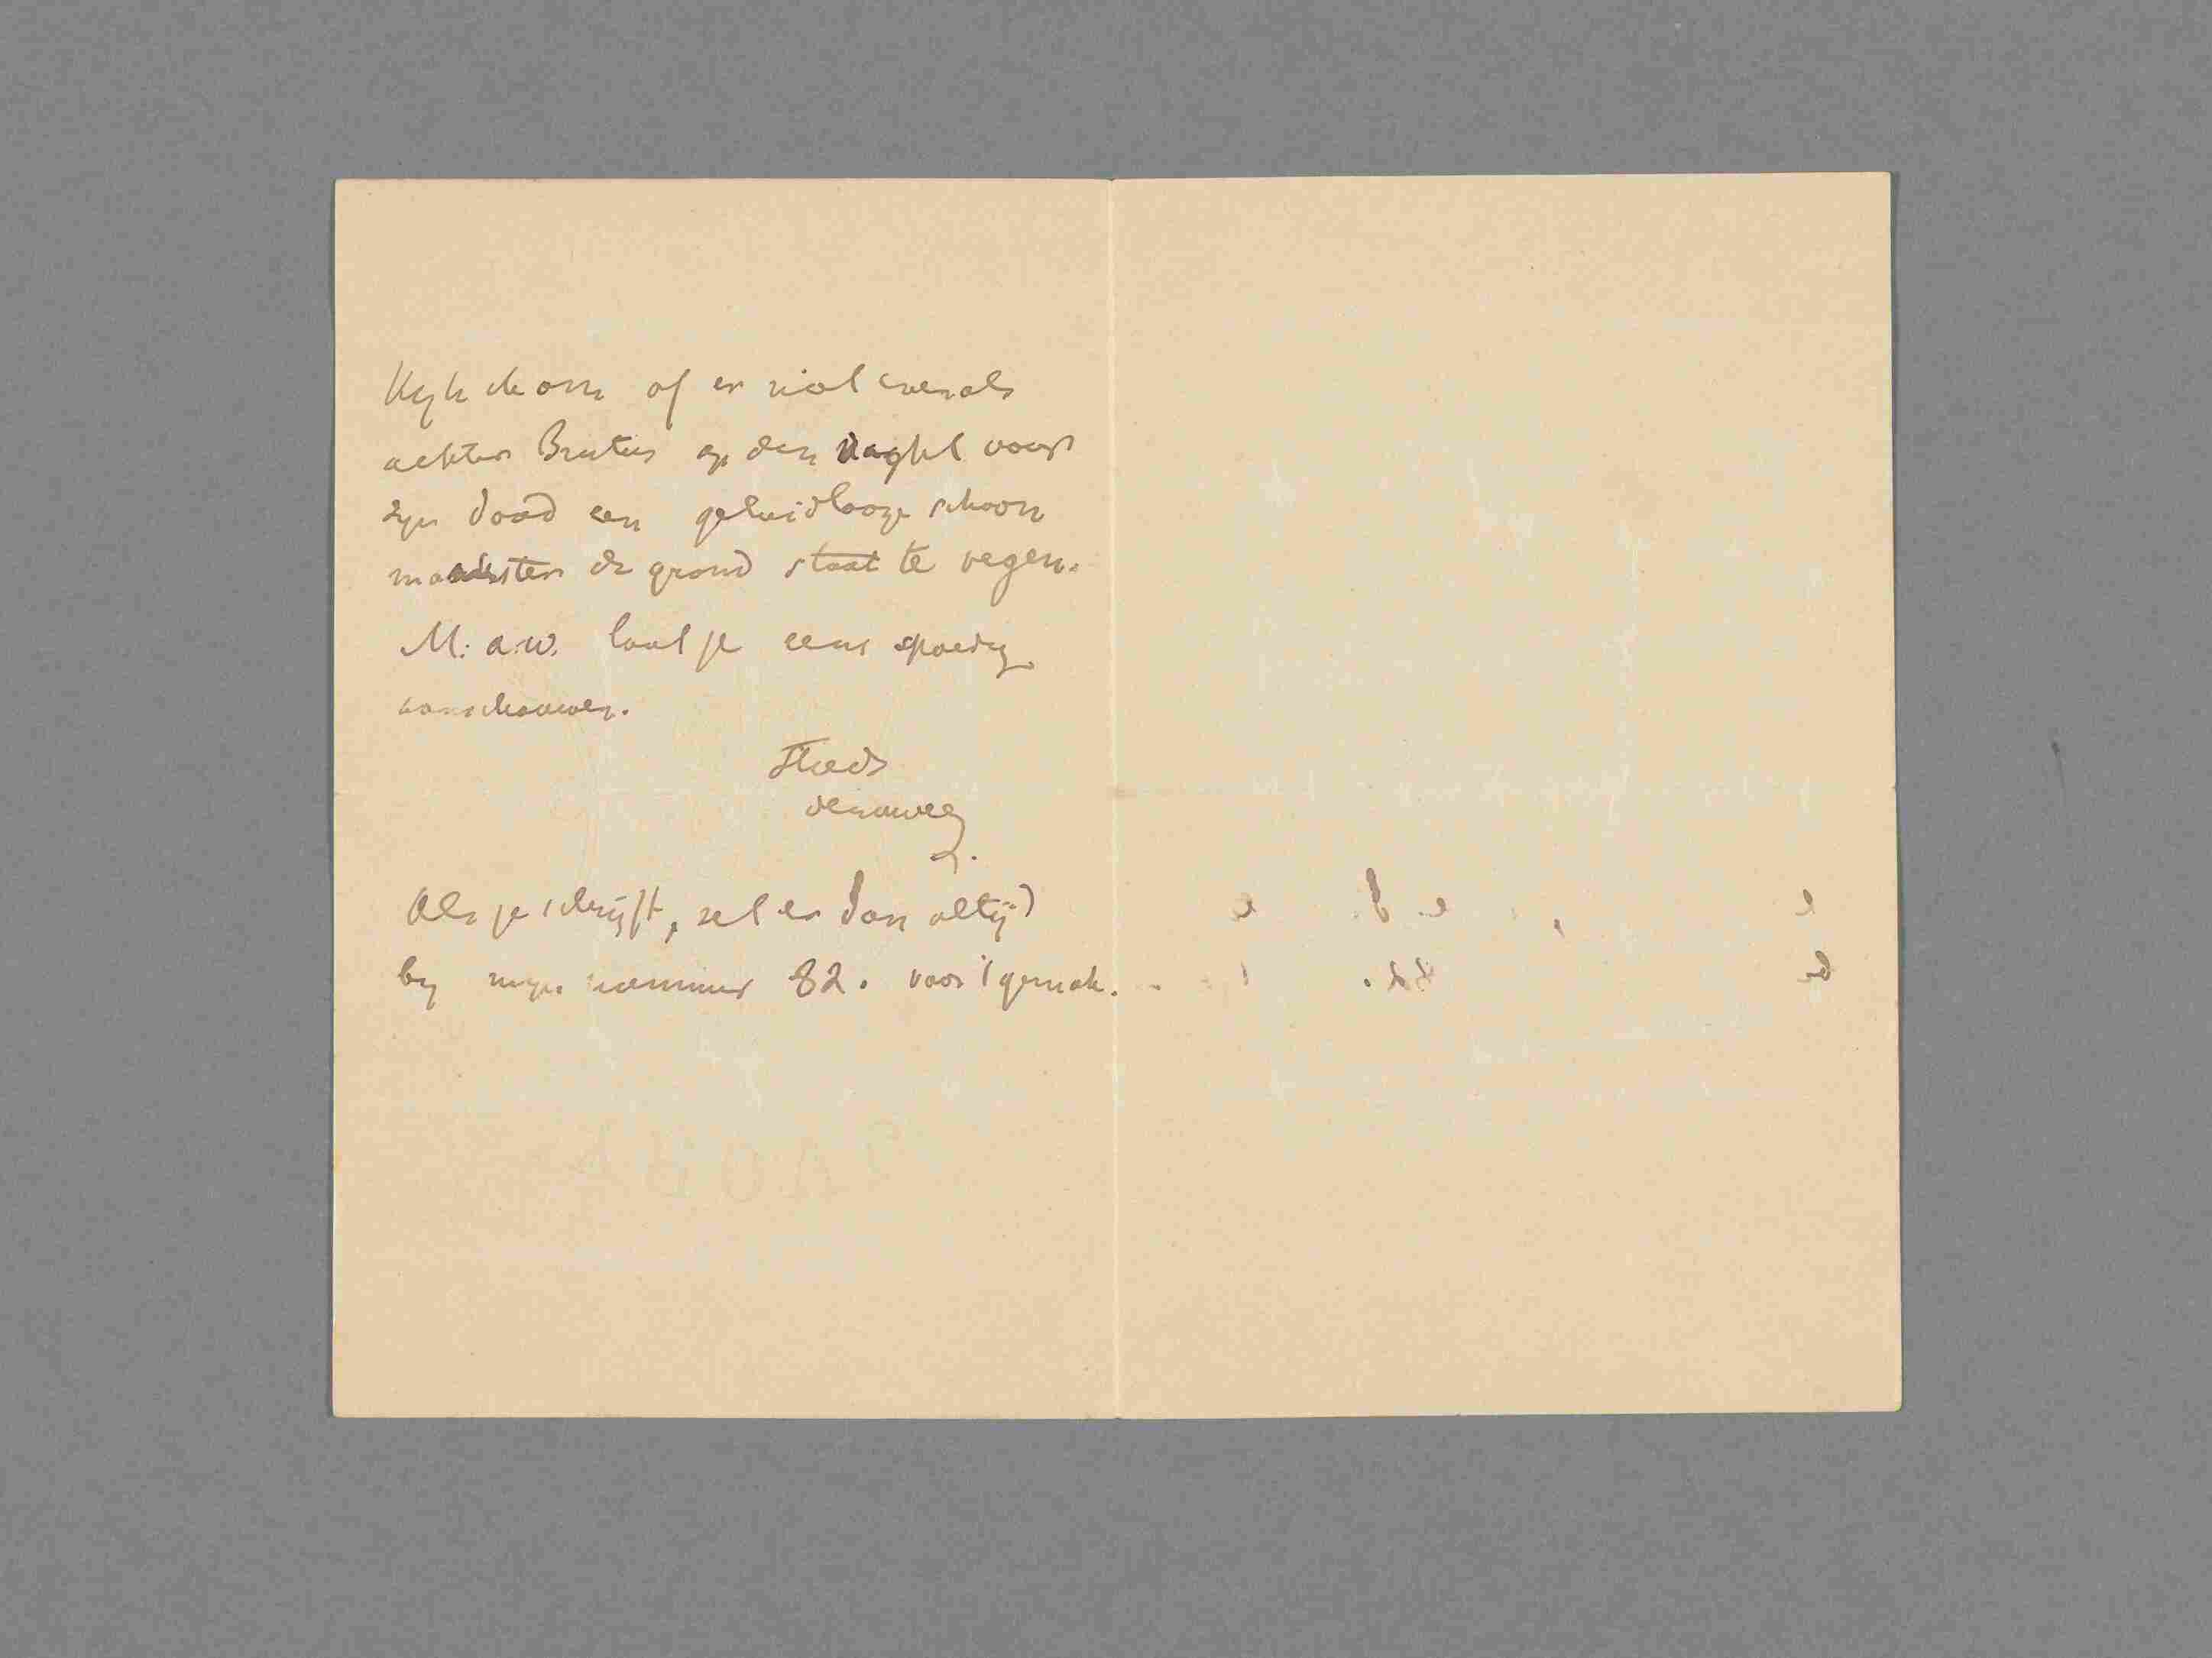 Kijk eens om of er niet evenals
achter Brutus op den nacht voor
zijn dood een geluidlooze schoon
maakster de grond staat te vegen.
M. a. w. laat je eens spoedig
aanschouwen.
Steeds
Als je schrijft, zet er dan altijd
bij mijn nummer 82. voor 't gemak.